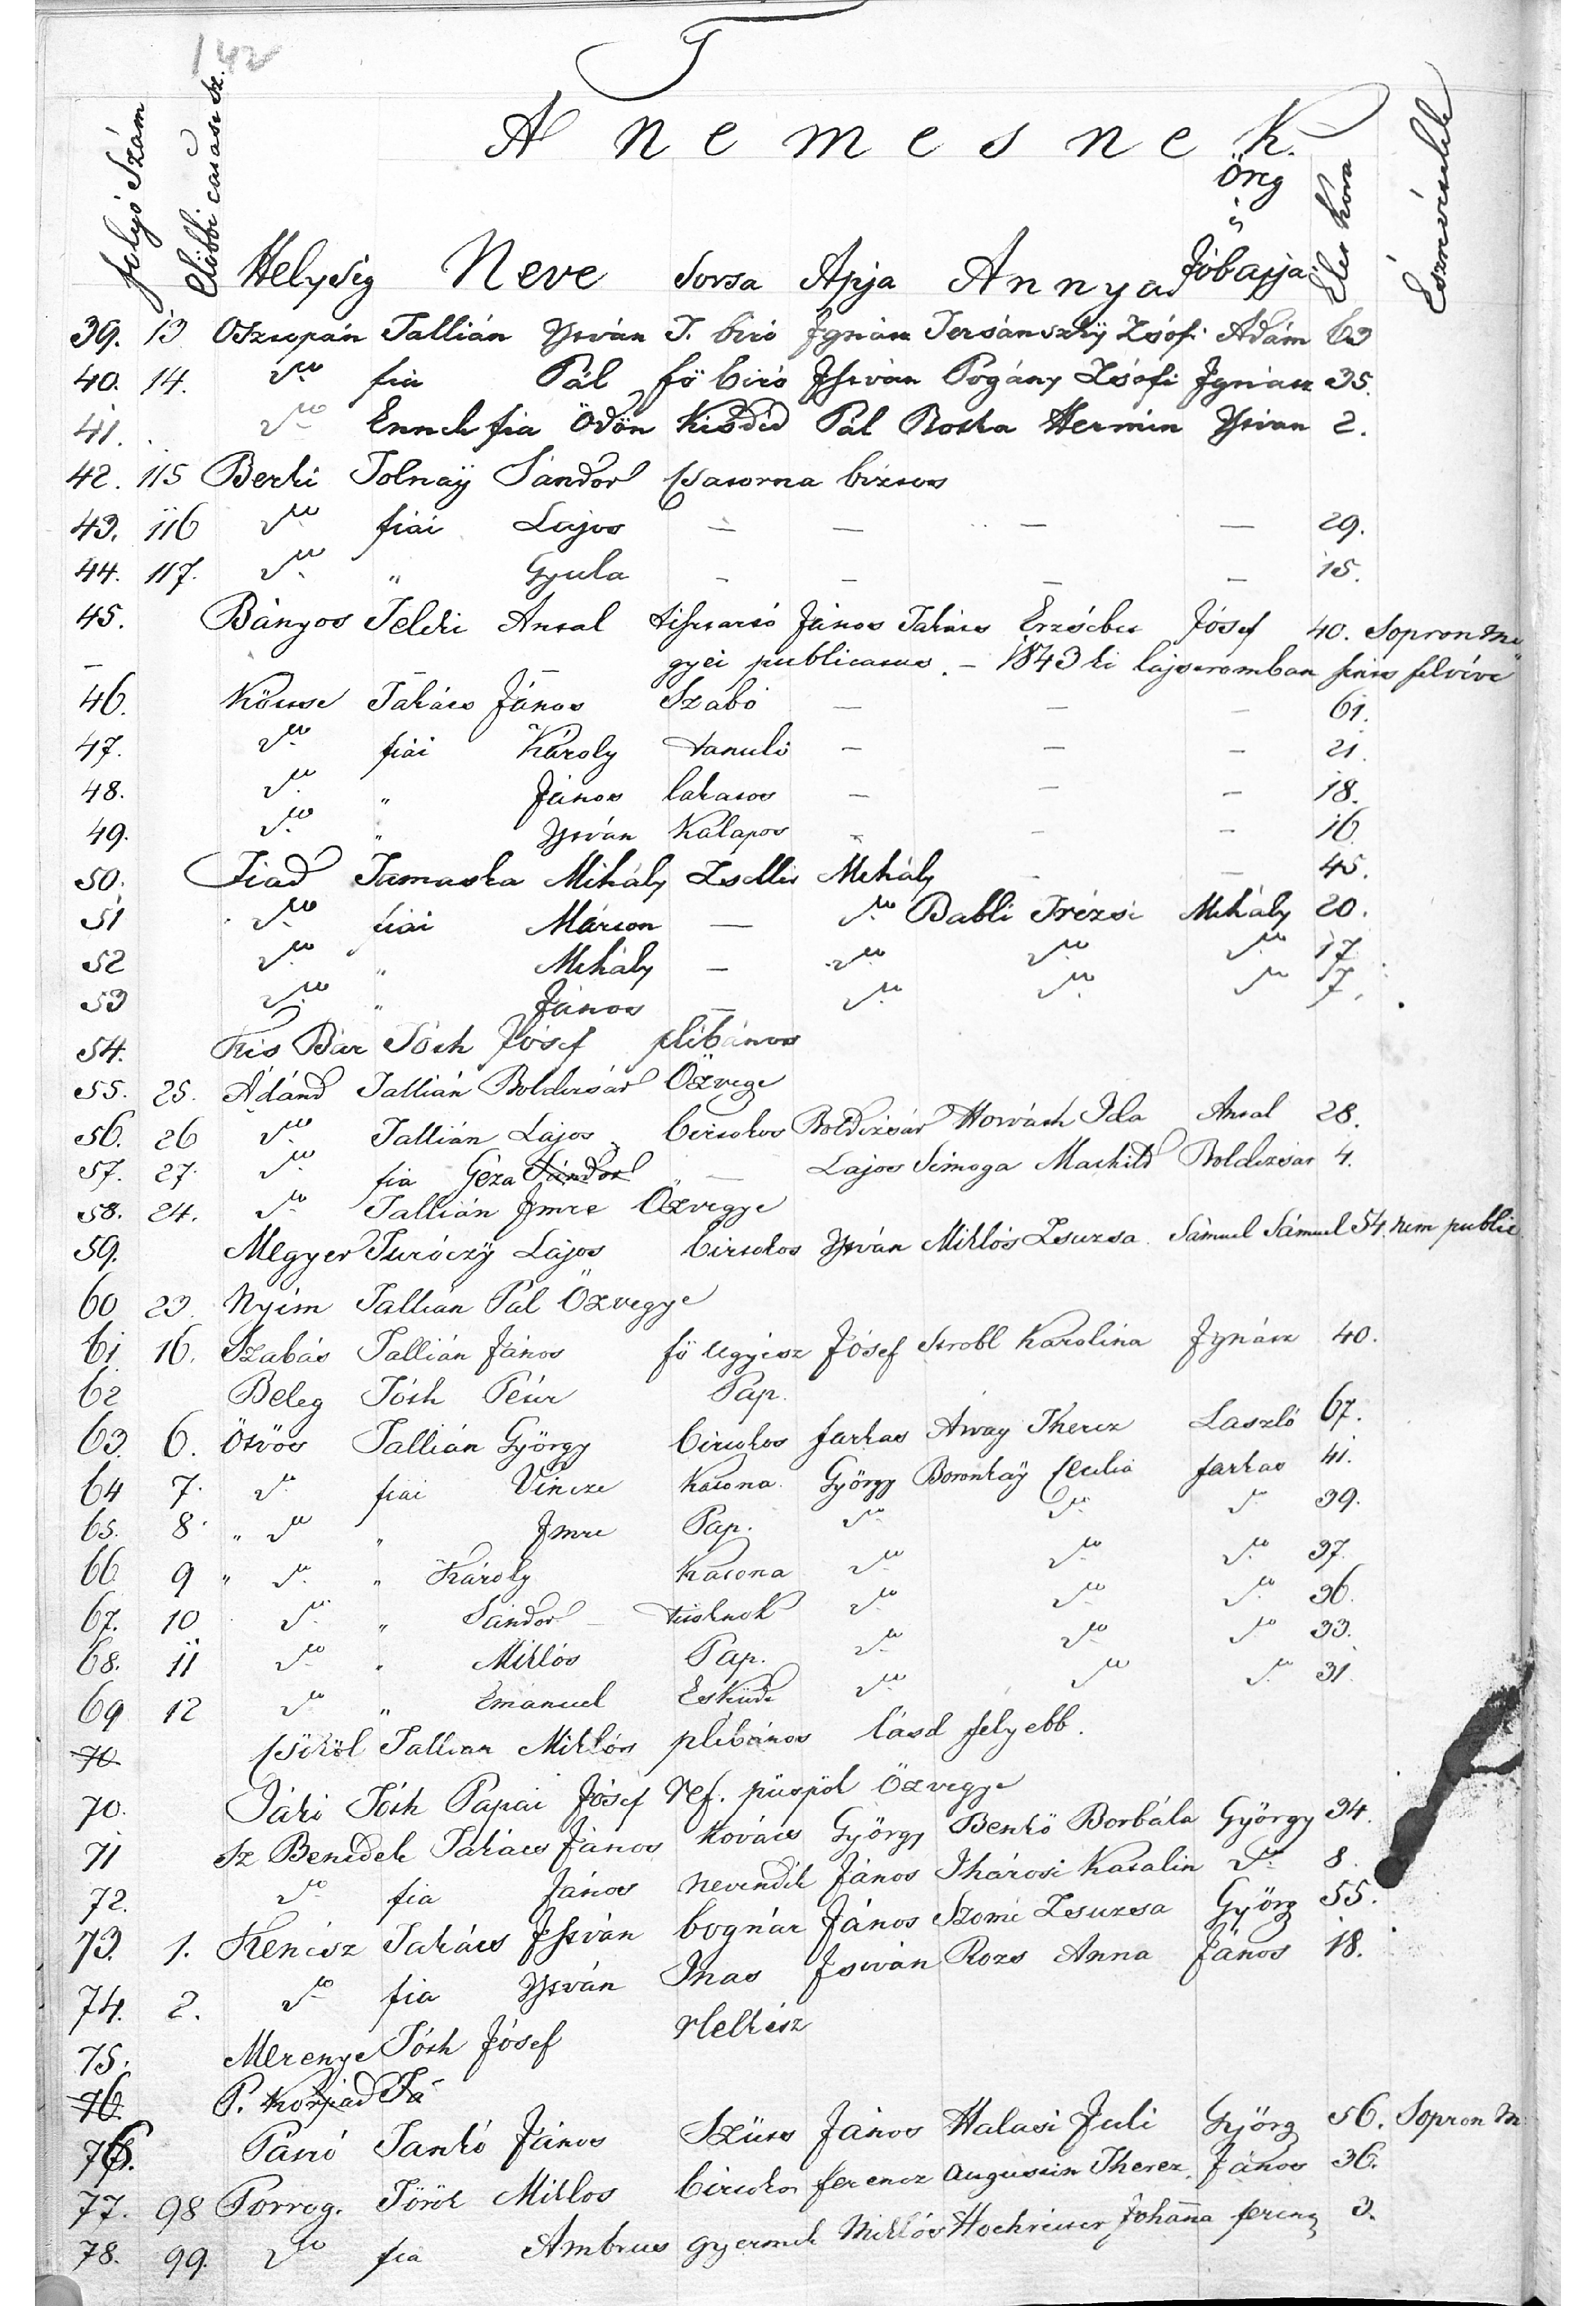 142
T
A nemesnek
folyó Szám
Helység Neve Sorsa Apja Annya Öreg Jóbapja Élet Kora Észrevételek
39. 13 Osztopán Tallián István T. biró Ignácz Tersánszkÿ Zsófi Ádám 63
40. 14. do fia Pál fö biró István Pogány Zsófi Ignácz 35.
41. do Ennek fia Ödön Kisded Pál Boska Hermin István 2.
42. 115 Berki Tolnaÿ Sándor Csatorna biztos
43. 116 do fiai Lajos — — — — 29.
44. 117. do " Gyula — — — — 15.
45. Bányos Teleki Antal tiszttartó János Takács Erzsébet Jósef 40. Sopron Me
gyei publicatus. – 1843 ki lajstromban sincs felvéve
46. Köttse Takács János Szabó — — — 61.
47. do fiai Károly tanuló — — — 21.
48. do " János lakatos — — — 18.
49. do " István Kalapos — — — 16.
50. Fiad Tamaska Mihály Zsellér Mihály — — 45.
51 do fiai Márton — do Babli Trézsi Mihály 20.
52 do " Mihály — do do do 17
53 do " János — do do do 7.
54. Kis Bár Tóth Jósef plébános
55. 25. Ádánd Tallián Boldizsár Özvege
56. 26 do Tallián Lajos birtokos Boldizsár Horváth Ida Antal 28.
57. 27. do fia Géza Sándor — Lajos Simoga Machild Boldizsár 4.
58. 24. do Tallián Imre Özvegye
59. Megyer Turóczÿ Lajos birtokos István Miklós Zsuzsa Sámuel Sámuel 54. nem public
60 23. Nyim Tallián Pál Özvegye
61 16. Szabás Tallián János fö ügyész Jósef Strobl Karolina Ignácz 40.
62 Beleg Tóth Péter Pap.
63. 6. Ötvös Tallián György birtokos farkas Arvay Therez Laszló 67.
64 7. do fiai Vincze Katona György Boronkaÿ Cecilia farkas 41.
65. 8. " do " Imre Pap. do do do 39.
66 9 " do " Károly Katona do do do 37.
67. 10 do " Sándor — tisztnok do do do 36.
68. 11 do " Miklós Pap. do do do 33.
69 12 do " Emánuel Esküdt do do do 31.
70 Csököl Tallian Miklós plébános lásd felyebb.
70. Jákó Tóth Pápai Jósef Ref. püspök Özvegye
71 Sz Benedek Takács János Kovács György Benkö Borbála György 34.
72. do fia János nevendék János Ihárosi Katalin do 8.
73. 1. Kenész Takács István bognár János Szomi Zsuzsa Györg 55.
74. 2. do fia István Inas István Rozs Anna János 18.
75. Merenye Tóth Jósef Helkész
76. P. Kovjad Tá
76. Patró Tankó János Szürs János Halasi Juli Györg 56. Sopron M
77. 98 Porrog. Török Miklos birtokos ferencz Augustin Therez. János 36.
78. 99. do fia Ambrus gyermek Miklós Hochreiter Johanna ferencz 3.